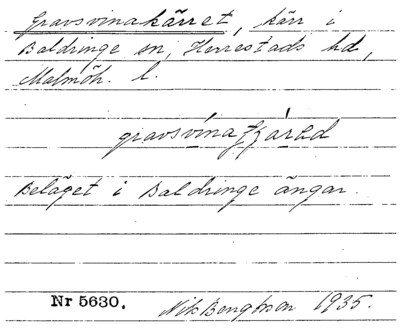 Gravsvinakärret, kärr i
Baldringe sn, Herrestads hd,
Malmöh. l.
gravsvina
Beläget i Baldringe ängar.
Nr 5630. Nils Bengtsson 1935.